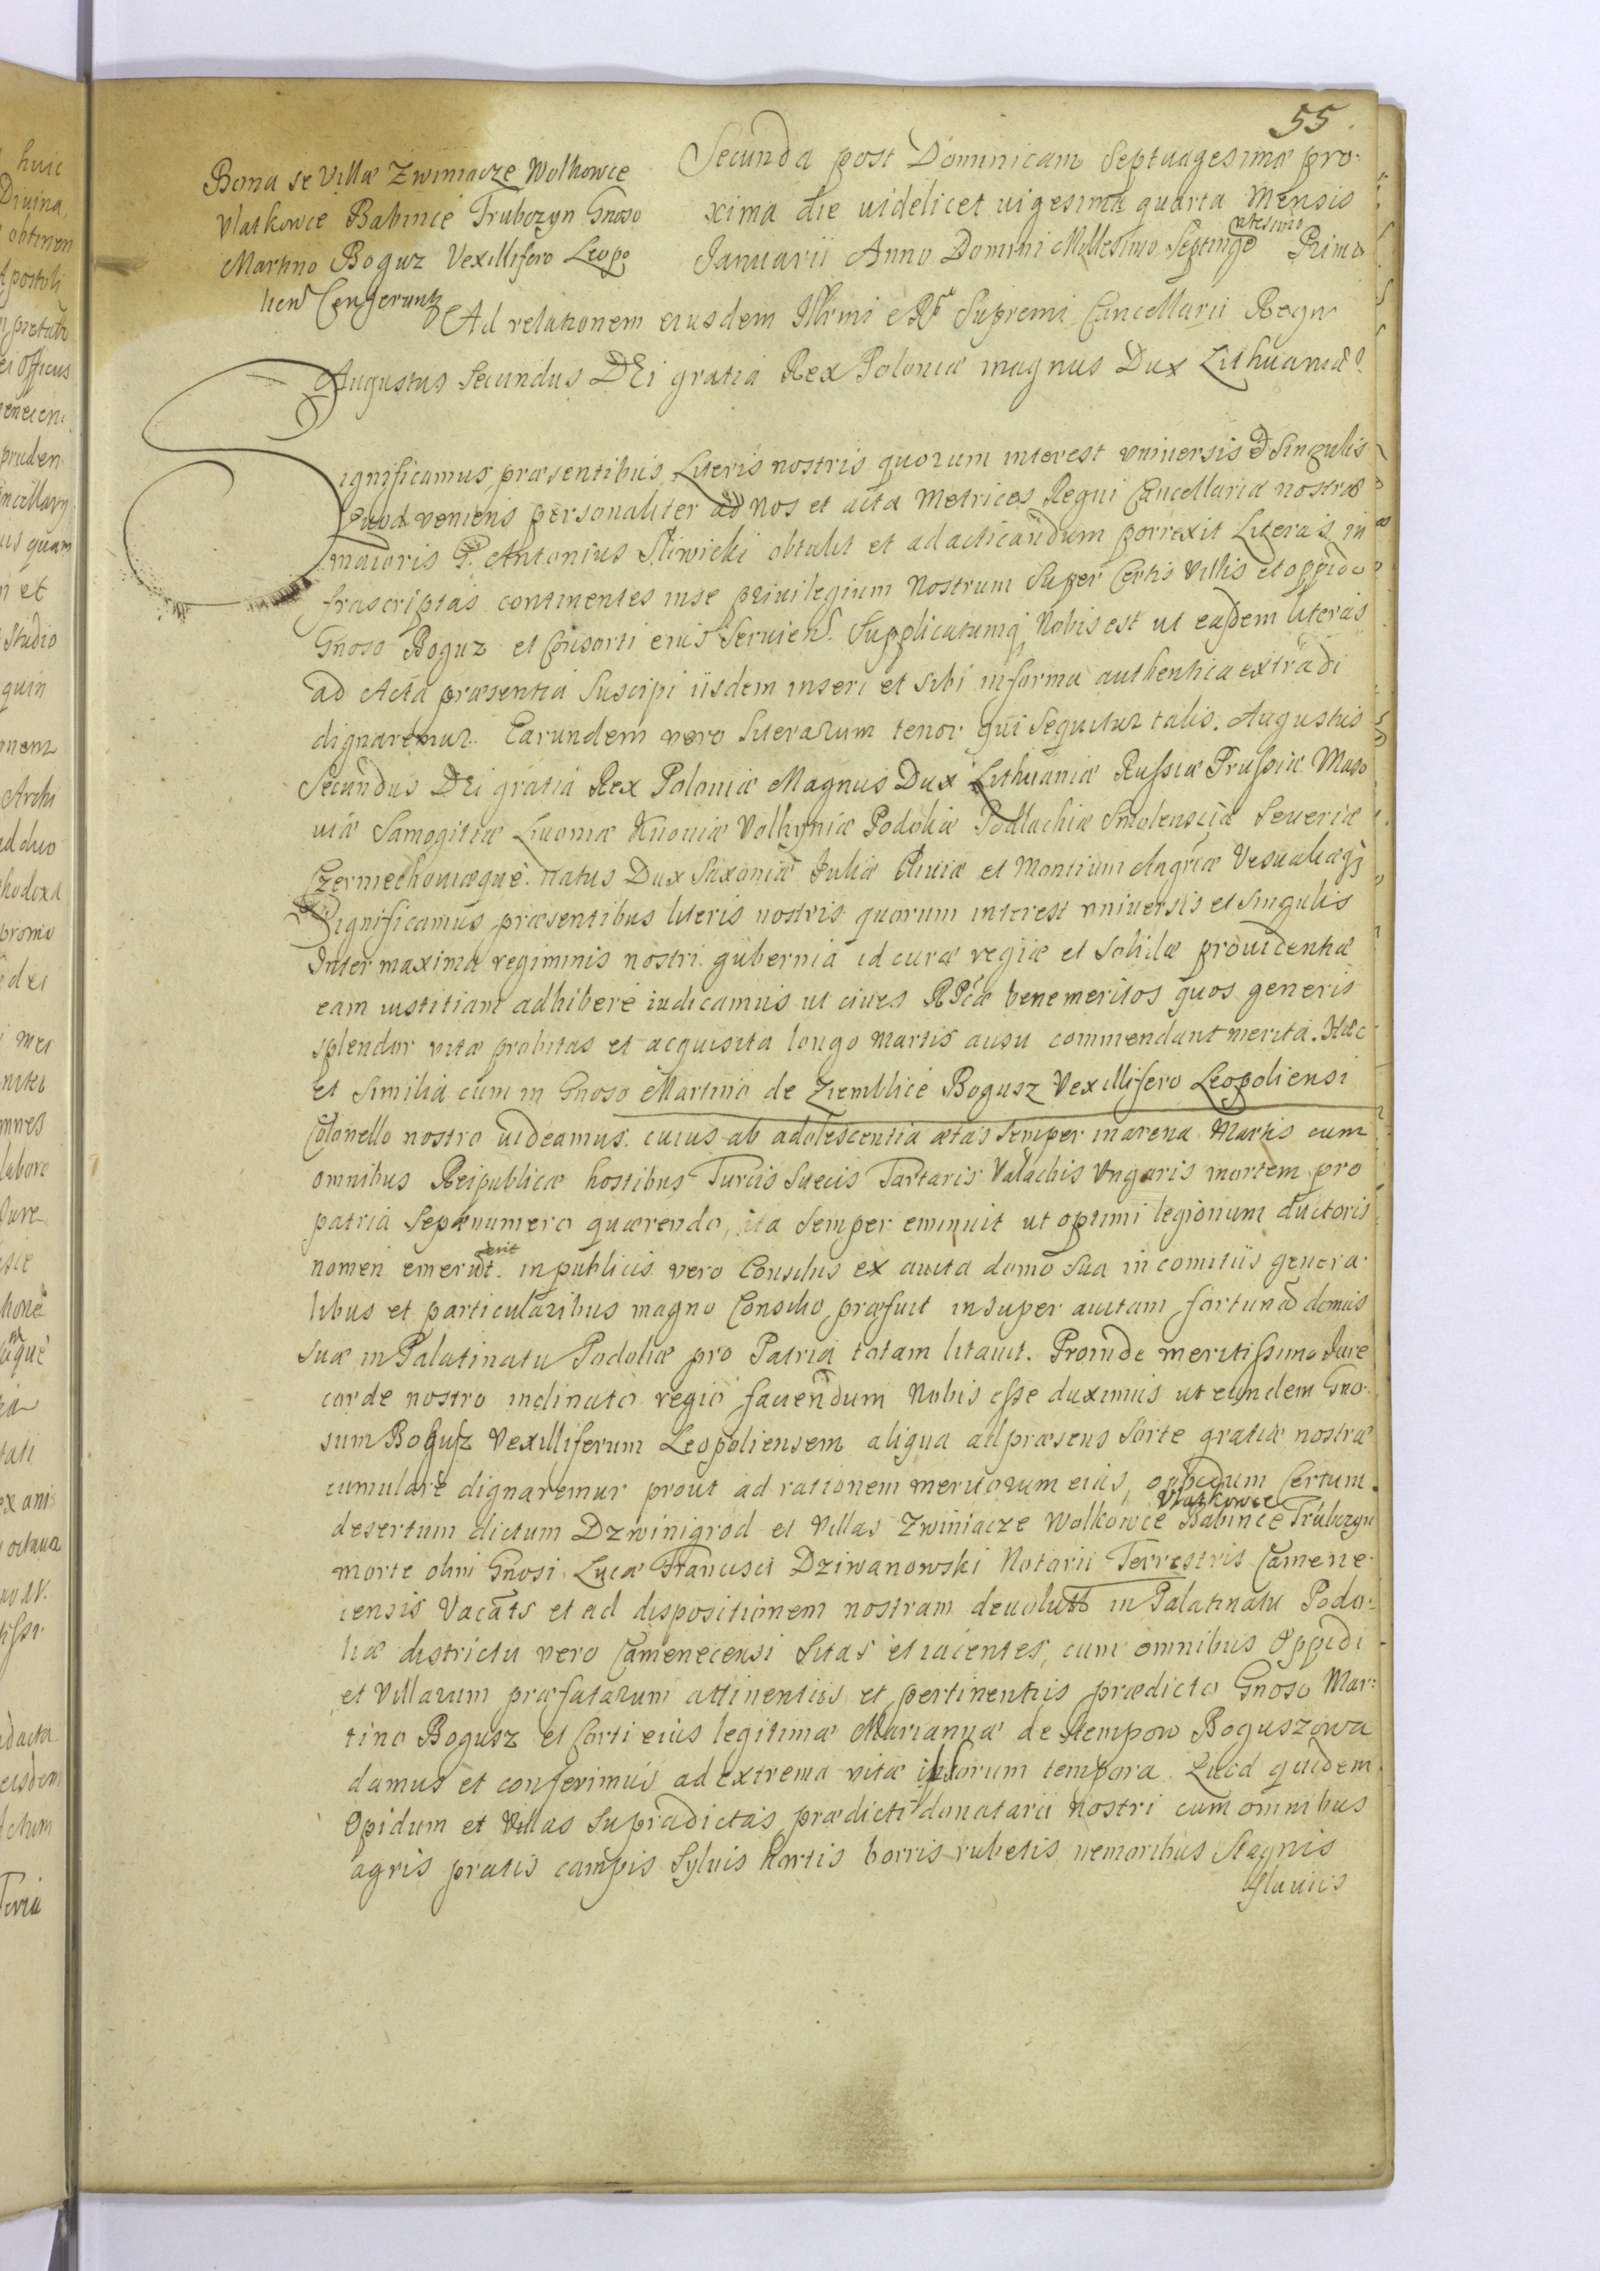 55.
Bona se Villæ Zwiniacze Wolkowce
Vlaskowce Babince Trubczyn Gnoso
Martino Boguz Vexillifero Leopo
lien Conferuntur
Secunda post Dominicam Septuagesimæ pro-
xima die videlicet vigesima quarta Mensis
Januarii Anno Domini Millesimo Septingentesimo Primo
Ad relationem eiusdem Illrmi Supremi Cancellarii Regni
Augustus Secundus DEi gratia Rex Poloniæ magnus Dux Lithuaniæ
Significamus præsentibus Literis nostris quorum interest vniversis et Singulis
Quod veniens personaliter ad Nos et acta Metrices Regni Cancellariæ nostræ
maioris G. Antonius Sliwicki obtulit et ad acticandum porrexit Literas in
frascriptas continentes in se privilegium Nostrum Super Certis Villis et oppido
Gnoso Boguz et Consorti eius Servien. Supplicatumq Nobis est ut easdem literas
ad Acta præsentia Suscipi iisdem inseri et sibi in forma authentica extradi
dignaremur. Earundem vero literarum tenor qui Sequitur talis. Augustus
Secundus DEi gratia Rex Poloniæ Magnus Dux Lithuaniæ Russiæ Prussiæ Maso
uiæ Samogitiæ Livoniæ Kiioviæ Volhyniæ Podoliæ Podlachiæ Smolensciæ Severiæ
Czerniechouiæquè. natus Dux Saxoniæ Juliæ Cliviæ et Montium Angriæ Vesvaliæq
Significamus præsentibus literis nostris quorum interest vniversis et singulis
Inter maxima regiminis nostri gubernia id curæ regiæ et Solidæ providentiæ
eam iustitiam adhibere iudicamus ut cives RPcæ bene meritos quos generis
splendor vitæ probitas et acquisita longo Martis ausu commendant merita. Hæc
et Similia cum in Gnoso Martino de Ziemblice Bogusz Vexillifero Leopoliensi
Colonello nostro uideamus. cuius ab adolescentia ætas Semper in arena Martis cum
omnibus Reipublicæ hostibus Turcis Suecis Tartaris Valachis Vngaris mortem pro
patria Sepænumero quærendo, ita Semper eminuit ut optimi legionum ductoris
nomen emeruerit. in publicis vero Consiliis ex avita domo Sua in comitiis genera-
libus et particularibus magno Consilio præfuit insuper avitam fortunam domus
Suæ in Palatinatu Podoliæ pro Patria totam litavit. Proinde meritissimo Jure
corde nostro inclinato regio favendum Nobis esse duximus ut eundem Gno-
sum Bogusz Vexilliferum Leopoliensem aliqua ad præsens Sorte gratiæ nostræ
cumulare dignaremur prout ad rationem meritorum eius, oppidum Certum
desertum dictum Dzwinigrod et Villas Zwiniacze Wolkowce Vlaskowce Babince Trubczyn
morte olim Gnosi Lucæ Francisci Dziwanowski Notarii Terrestris Camene-
censis Vacats et ad dispositionem nostram devolutas in Palatinatu Podo-
liæ districtu vero Camenecensi Sitas et iacentes, cum omnibus Oppidi
et Villarum præfatarum attinentiis et pertinentiis prædicto Gnoso Mar-
tino Bogusz et Corti eius legitimæ Mariannæ de Stempow Boguszowa
damus et conferimus ad extrema vitæ ipsorum tempora. Quod quidem
Opidum et Villas Supradictas prædicti donatarii nostri cum omnibus
agris pratis campis Sylvis hortis borris rubetis nemoribus Stagnis
fluviis